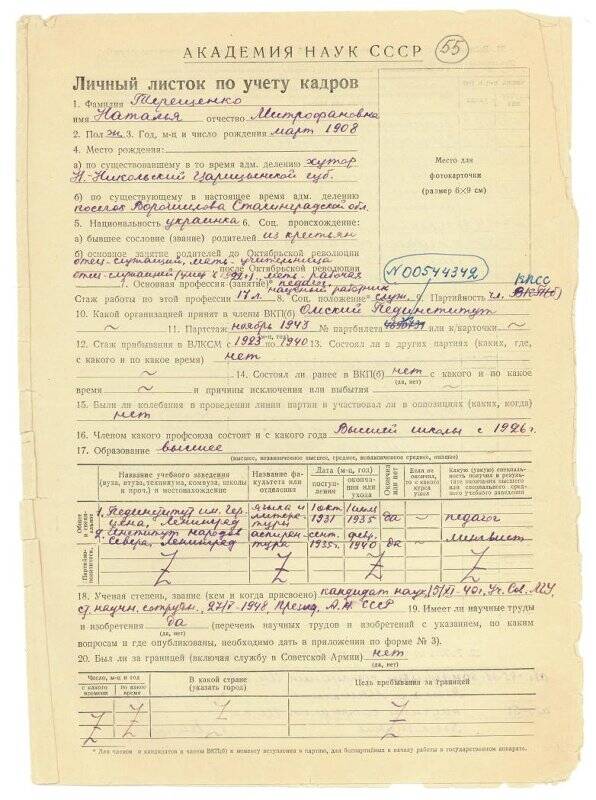 АКАДЕМИЯ НАУК СССР 55
Личный листок по учету кадров
1. Фамилия Терещенко
имя Наталья отчество Митрофановна
2. Пол ж. 3. Год, м-ц и число рождения март 1908
4. Место рождения:
а) по существовавшему в то время адм. делению хутор
Н-Никольский Царицынской губ.
б) по существующему в настоящее время адм. делению
поселок Ворошилова Сталинградской обл.
5. Национальность украинка 6. Соц. происхождение:
а) бывшее сословие (звание) родителей из крестьян
б) основное занятие родителей до Октябрьской революции
отец-служащий, мать-учительница
после Октябрьской революции
отец-служащий мать-рабочая
7. Основная профессия (занятие) педагог,
научный работник
Стаж работы по этой профессии 17 л. 8. Соц. положение служ. 9. Партийность чл. ВКП(б) КПСС
N 00544342
10. Какой организацией принят в члены ВКП(б) Омский Пединститут
~ 11. Партстаж ноябрь 1943 № партбилета или к/карточки ~
12. Стаж пребывания в ВЛКСМ с 1923 по 1940 13. Состоял ли в других партиях (каких, где,
(м-ц, год)
с какого и по какое время) нет
~ 14. Состоял ли ранее в ВКП(б) нет с какого и по какое
(да, нет)
время ~ и причины исключения или выбытия ~
15. Были ли колебания в проведении линии партии и участвовал ли в оппозициях (каких, когда)
нет
16. Членом какого профсоюза состоит и с какого года Высшей школы с 1926 г.
17. Образование высшее
(высшее, незаконченное высшее, среднее, незаконченное среднее, низшее)
Название учебного заведения (вуза, втуза, техникума, комвуза, школы и проч.) и местонахождение
Название факультета или отделения
Дата (м-ц, год)
поступления
окончания или ухода
Окончил или нет
Если не окончил, то с какого курса ушел
Какую (узкую) специальность получил в результате окончания высшего или специального среднего учебного заведения
Общее и специальное
1. Пединститут им. Герцена, Ленинград
языка и литературы
1 окт. 1931
1 июля 1935
да
—
педагог
2. Институт народов Севера, Ленинград
аспирантура
сент. 1935 г.
фев. 1940
да
—
лингвист
Партийно-политическое
Z Z Z Z Z Z Z
18. Ученая степень, звание (кем и когда присвоено) кандидат наук, 15/XI-40 г., Уч. Сов. ЛГУ,
ст. научн. сотрудн., 27/V-1948 Презид. А.Н. СССР 19. Имеет ли научные труды
и изобретения да (перечень научных трудов и изобретений с указанием, по каким
(да, нет)
вопросам и где опубликованы, необходимо дать в приложении по форме № 3).
20. Был ли за границей (включая службу в Советской Армии) нет
(да, нет)
Число, м-ц и год
с какого времени
по какое время
В какой стране (указать город)
Цель пребывания за границей
Z Z Z Z
* Для членов и кандидатов в члены ВКП(б) к моменту вступления в партию, для беспартийных к началу работы в государственном аппарате.
Место для
фотокарточки
(размер 6×9 см)